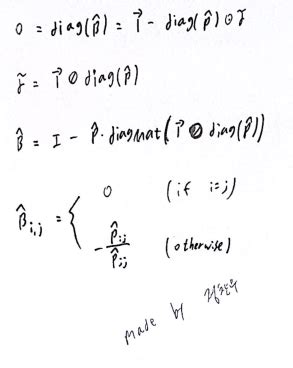 0 = diag(B̂) = 1⃗ - diag(P̂) ⊙ γ̃
γ̃ = 1⃗ ⊘ diag(P̂)
B̂ = I - P̂·diagMat(1⃗ ⊘ diag(P̂))
B̂i,j = { 0 (if i=j)
-P̂ij/P̂jj (otherwise)
made by